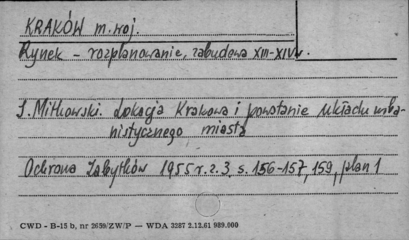 KRAKÓW m. woj.
Rynek – rozplanowanie, zabudowa XIII-XIV w.
J. Mitkowski. Lokacja Krakowa i powstanie układu urba-
nistycznego miasta
Ochrona Zabytków 1955 r. z. 3, s. 156-157, 159, plan 1
CWD - B-15 b, nr 2659/ZW/P — WDA 3287 2.12.61 989.000